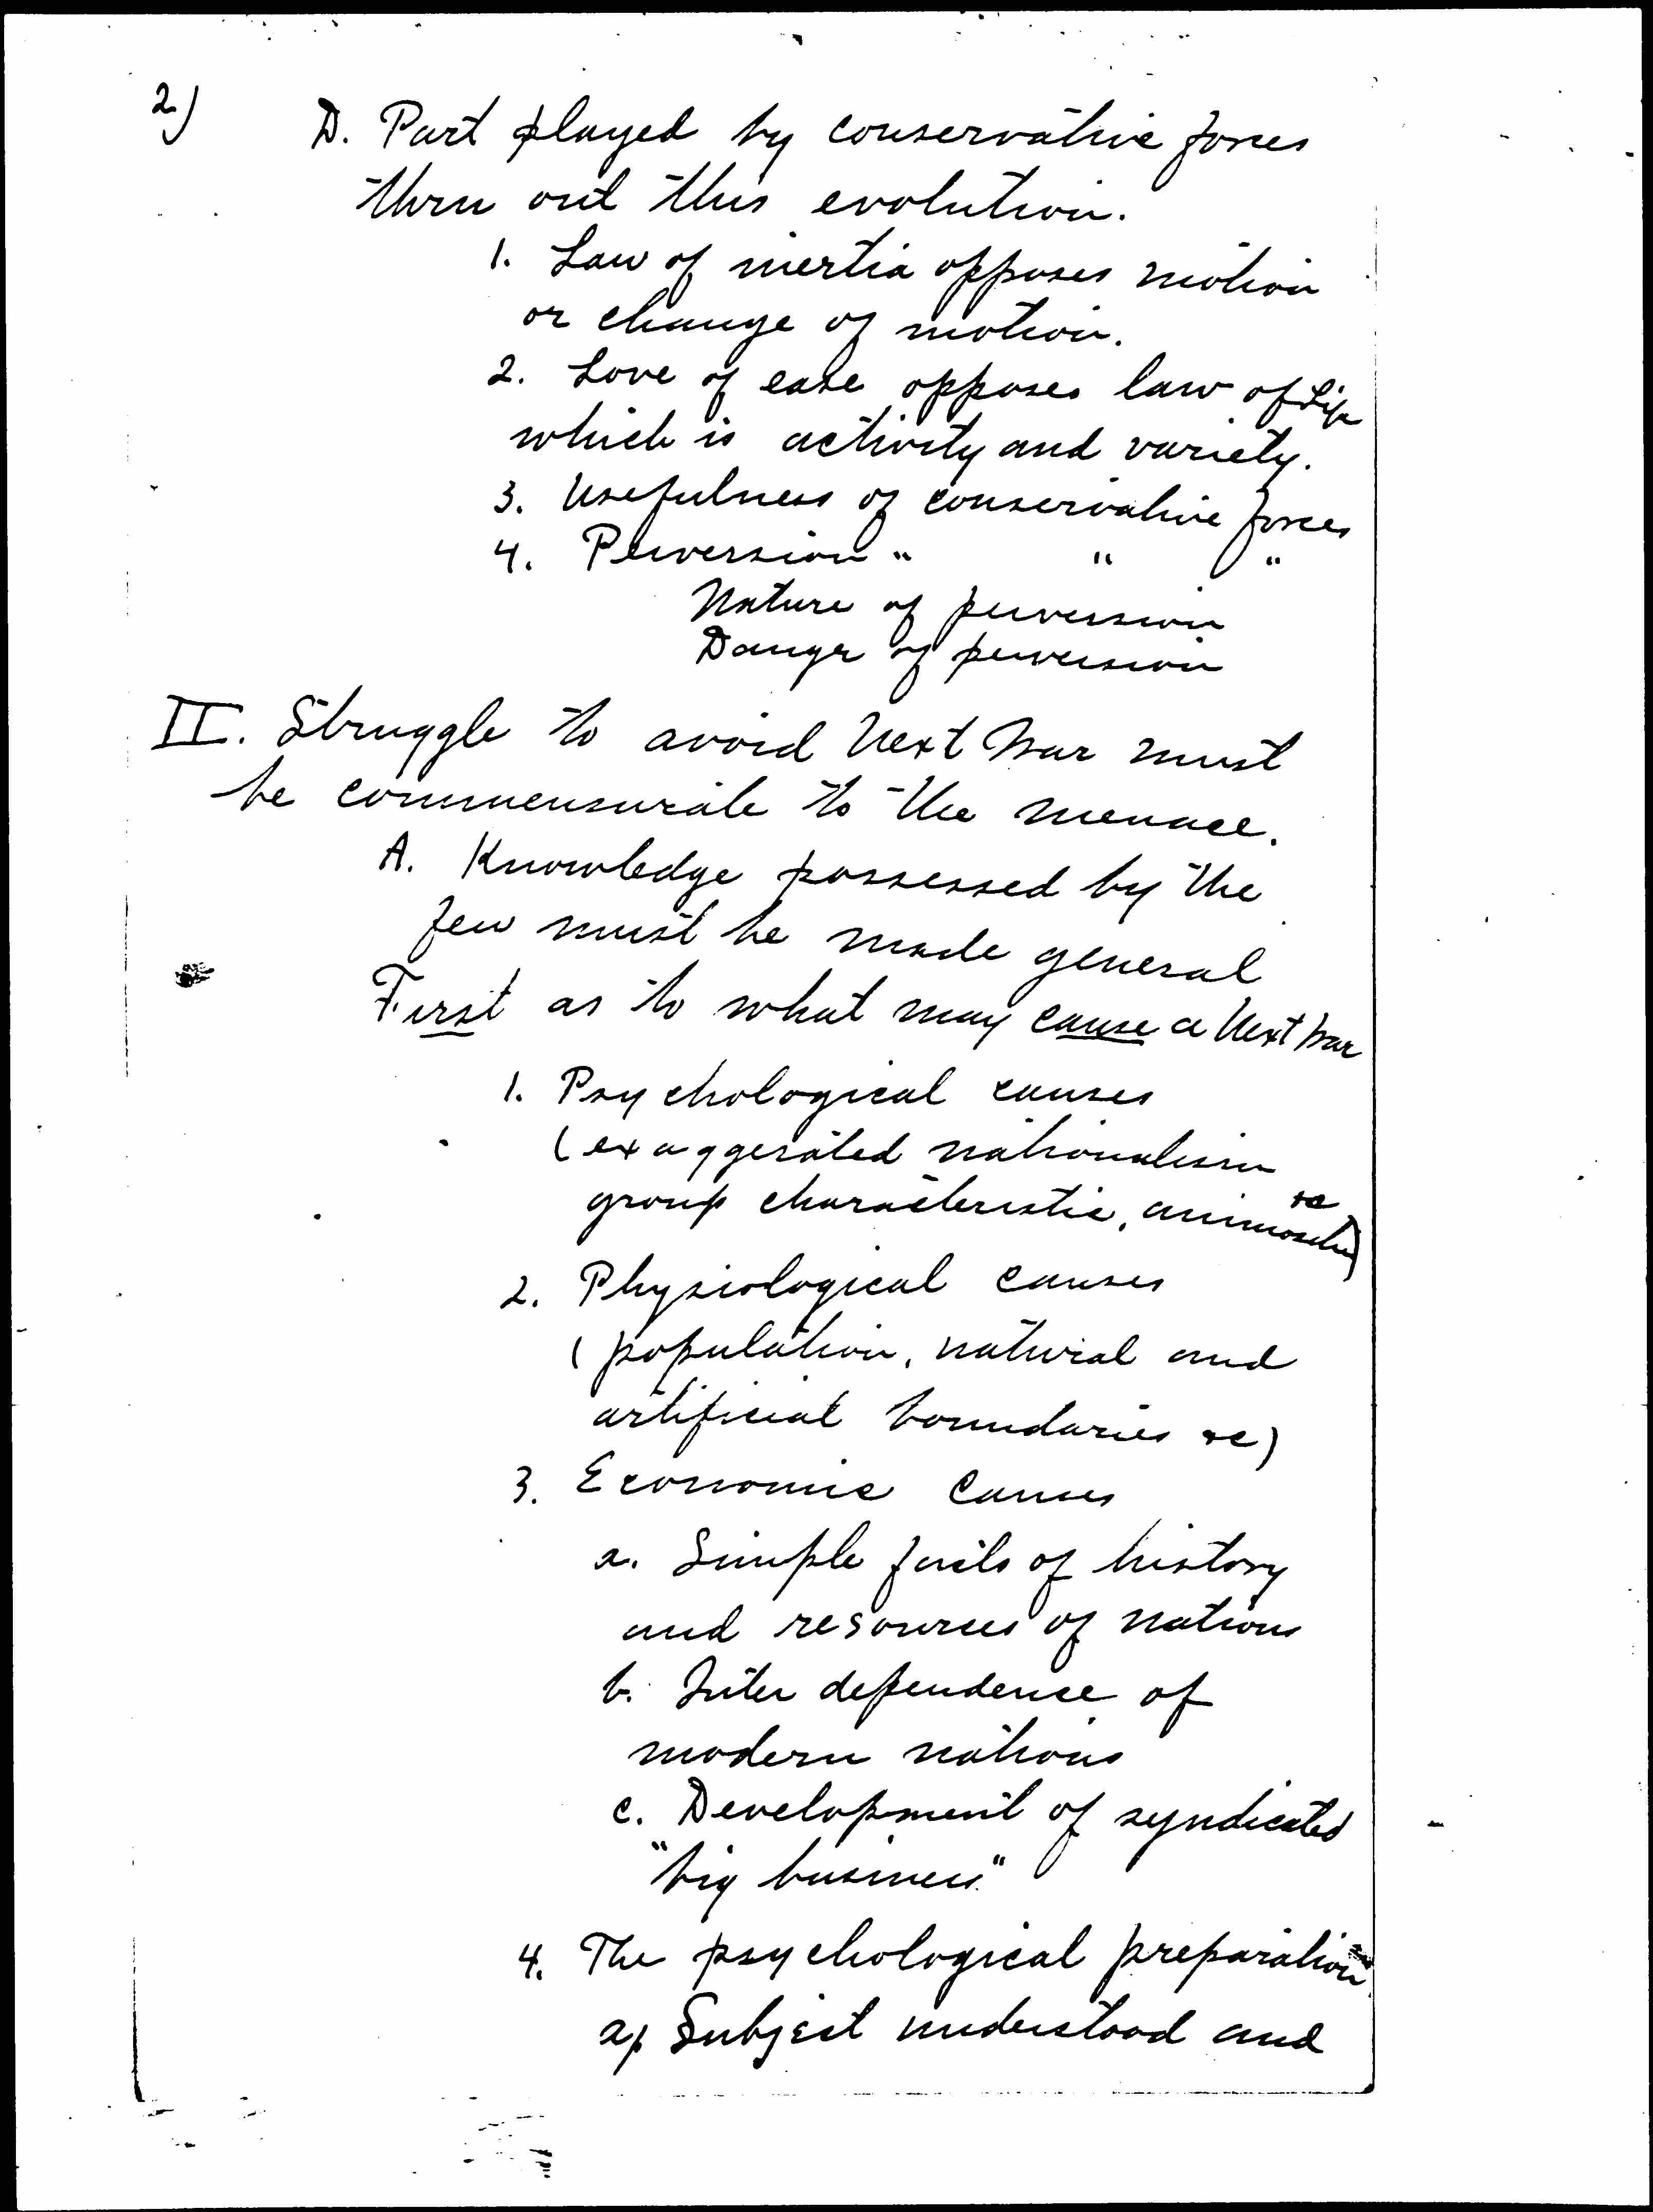 2)
D. Part played by conservative forces
thru out this evolution.
1. Law of inertia opposes motion
or change of motion.
2. Love of ease opposes law of Life
which is activity and variety.
3. Usefulness of conservative forces
4. Perversion " " "
Nature of perversion
Danger of perversion
II. Struggle to avoid Next War must
be commensurate to the menace.
A. Knowledge possessed by the
few must be made general
First as to what may cause a Next War
1. Psychological causes
(exaggerated nationalism
group characteristic, animosities &c)
2. Physiological causes
(population, natural and
artificial boundaries &c)
3. Economic Causes
a. Simple facts of history
and resources of nations
b. Inter dependence of
modern nations
c. Development of syndicated
"big business"
4. The psychological preparation
a) Subject understood and